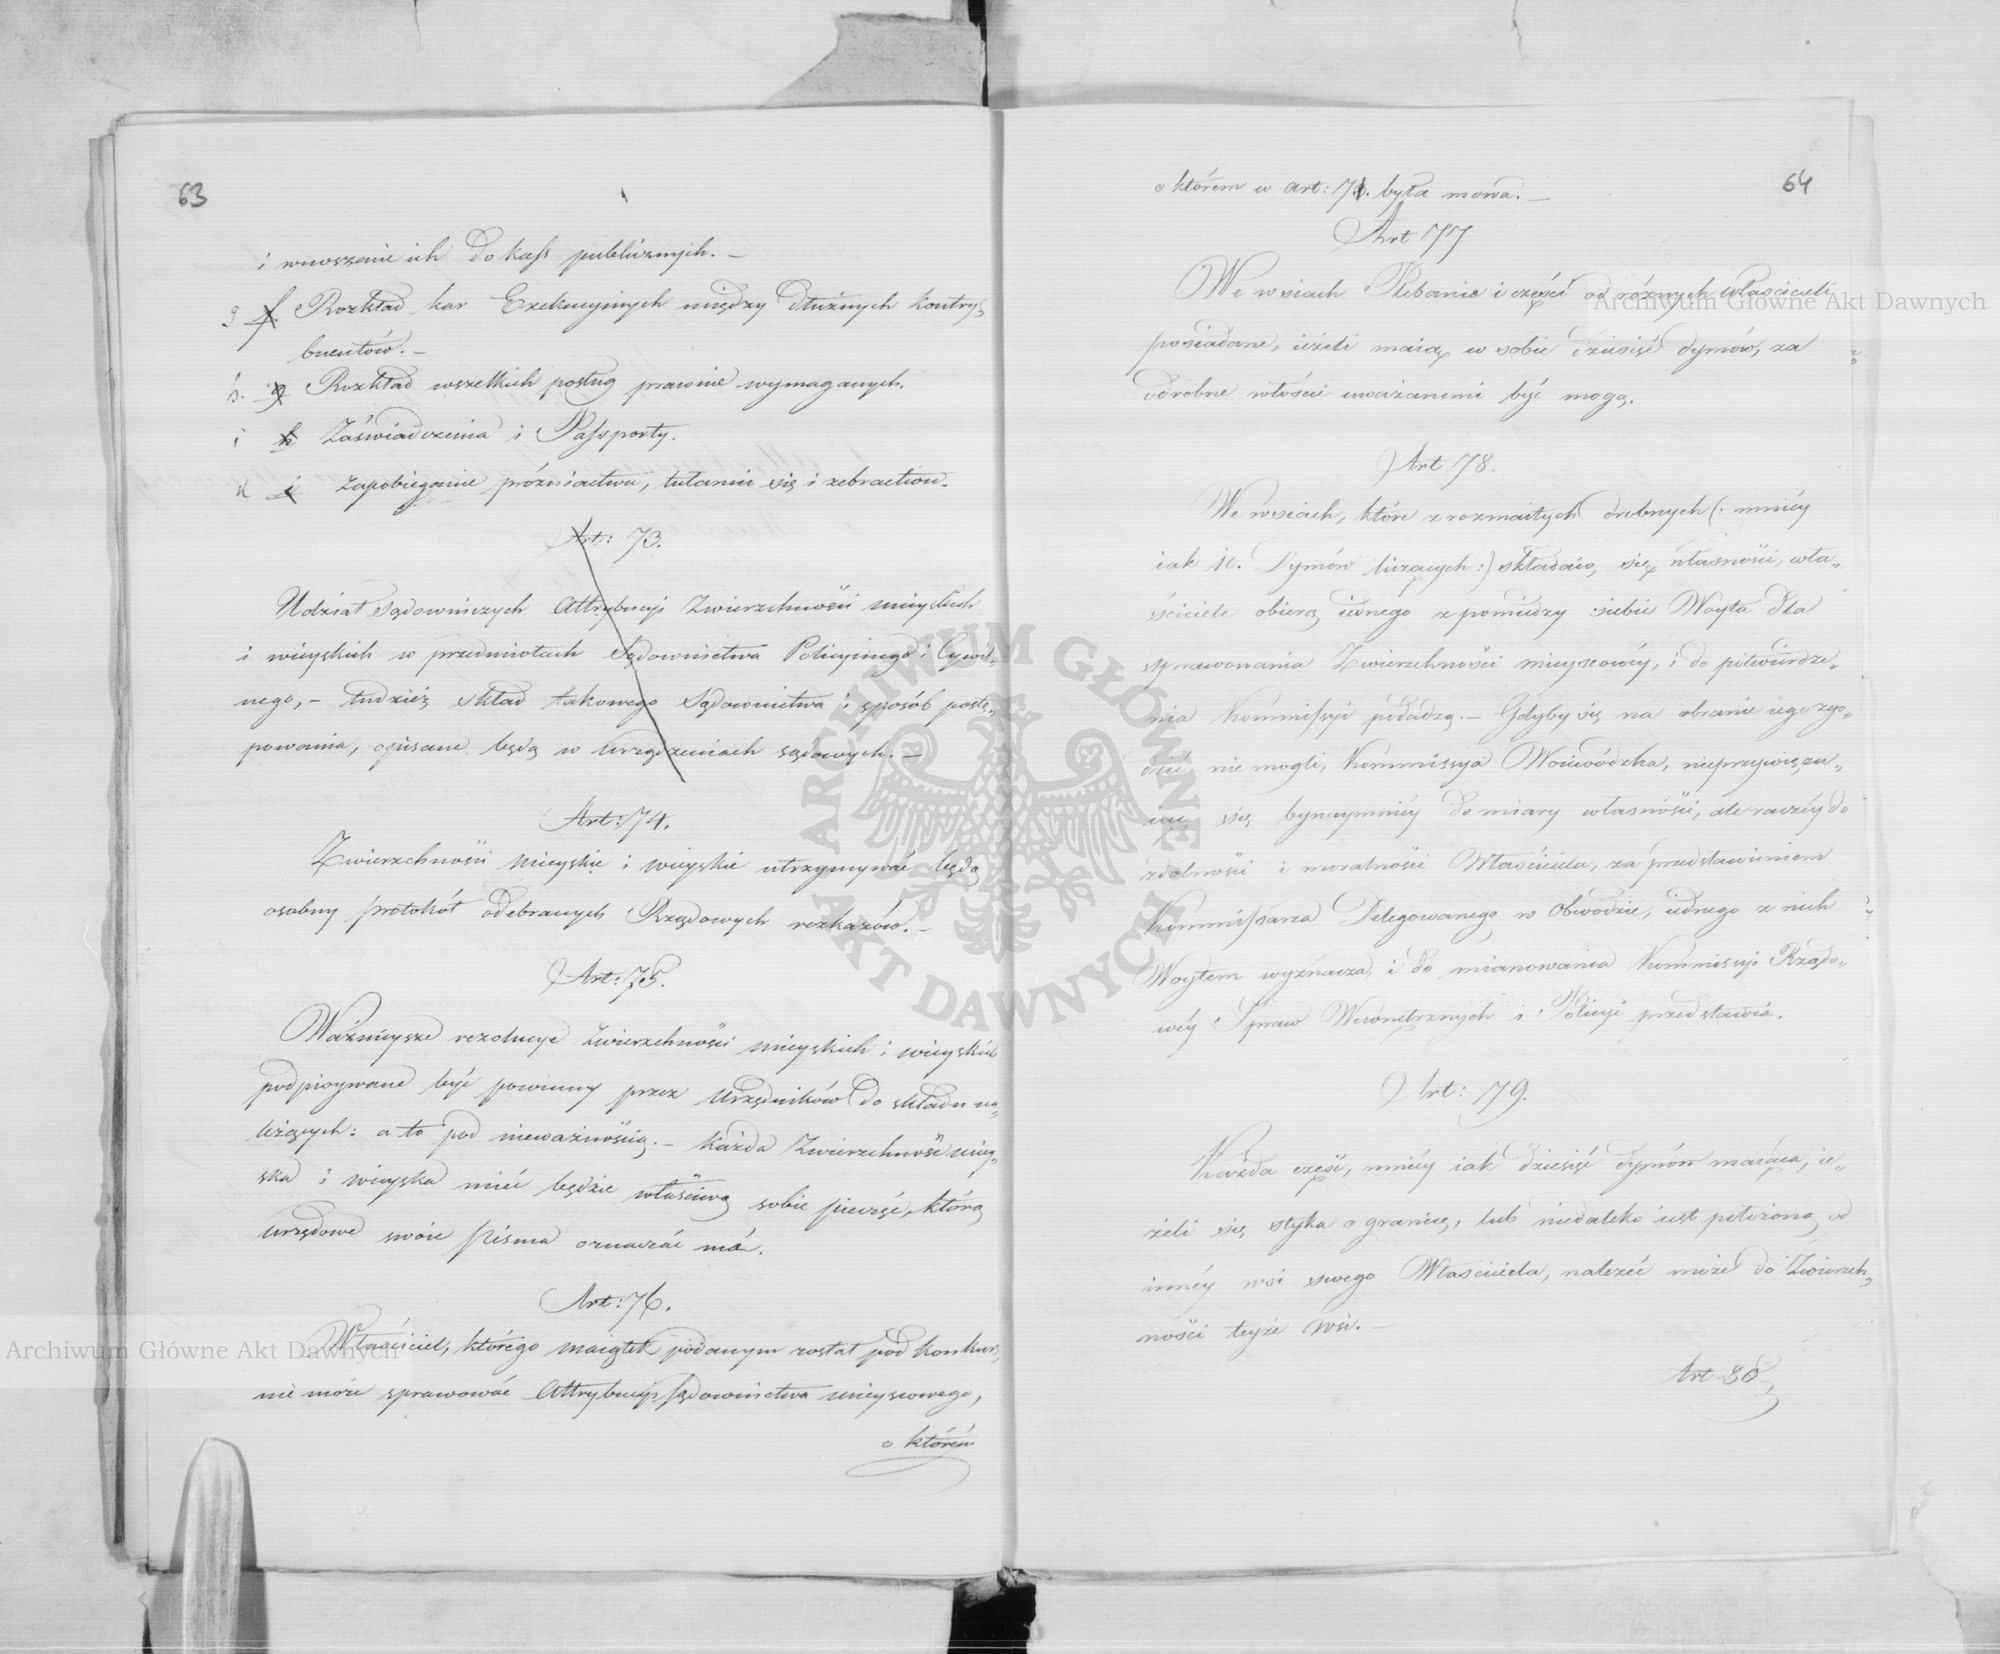 63
i wnoszenie ich do kass publicznych. –
g f. Rozkład kar Exekucyinych między dłużnych kontry-
buentów. –
h. g Rozkład wszelkich posług prawnie wymaganych.
i h Zaświadczenia i Passporty.
k i Zapobieganie próżniactwu, tułaniu się i żebractwu.
Art: 73.
Udział sądowniczych Attrybucyi Zwierzchności mieyskich
i wieyskich w przedmiotach Sądownictwa Policyinego i Cywil-
nego, – tudzież skład takowego Sądownictwa i sposób postę-
powania, opisane będą w urządzeniach sądowych. –
Art: 74.
Zwierzchności mieyskie i wieyskie utrzymywać będą
osobny protokół odebranych Rządowych rozkazów. –
Art: 75.
Ważnieysze rezolucye Zwierzchności mieyskich i wieyskich
podpisywane być powinny przez Urzędników do składu na-
leżących: a to pod nieważnością. – Każda Zwierzchność miey-
ska i wieyska mieć będzie właściwą sobie pieczęć, którą
urzędowe swoie pisma oznaczać má.
Art: 76.
Właściciel, którego maiątek podanym został pod konkurs,
nie może sprawować Attrybucyi sądownictwa mieyscowego,
o którém
64
o którem w art: 71. była mowa. –
Art 77
We wsiach Plebanie i części od różnych właścicieli
posiadane, ieżeli maią w sobie dziesięć dymów, za
odrobne włości uważanemi być mogą.
Art 78.
We wsiach, które z rozmaitych drobnych (: mniéy
iak 10. Dymów liczących :) składaią się własności, wła-
ściciele obiorą iednego z pomiędzy siebie Woyta dla
sprawowania Zwierzchności mieyscowéy, i do potwierdze-
nia Kommissyi podadzą. – Gdyby się na obranie iego zgo-
dzić nie mogli, Kommissya Woiewódzka, nieprzywiązu-
iąc się bynaymniéy do miary własności, ale raczéy do
zdolności i moralności Właściciela, za przedstawieniem
Kommissarza Delegowanego w Obwodzie, iednego z nich
Woytem wyznacza, i do mianowania Kommissyi Rządo-
wéy Spraw Wewnętrznych i Policyi przedstawia.
Art: 79.
Każda część, mniéy iak dziesięć dymów maiąca, ie-
żeli się styka o granicę, lub niedaleko iest położona od
innéy wsi swego Właściciela, należéć może do Zwierzch-
ności teyże wsi. –
Art 80
Archiwum Główne Akt Dawnych
Archiwum Główne Akt Dawnych
ARCHIWUM GŁÓWNE
AKT DAWNYCH